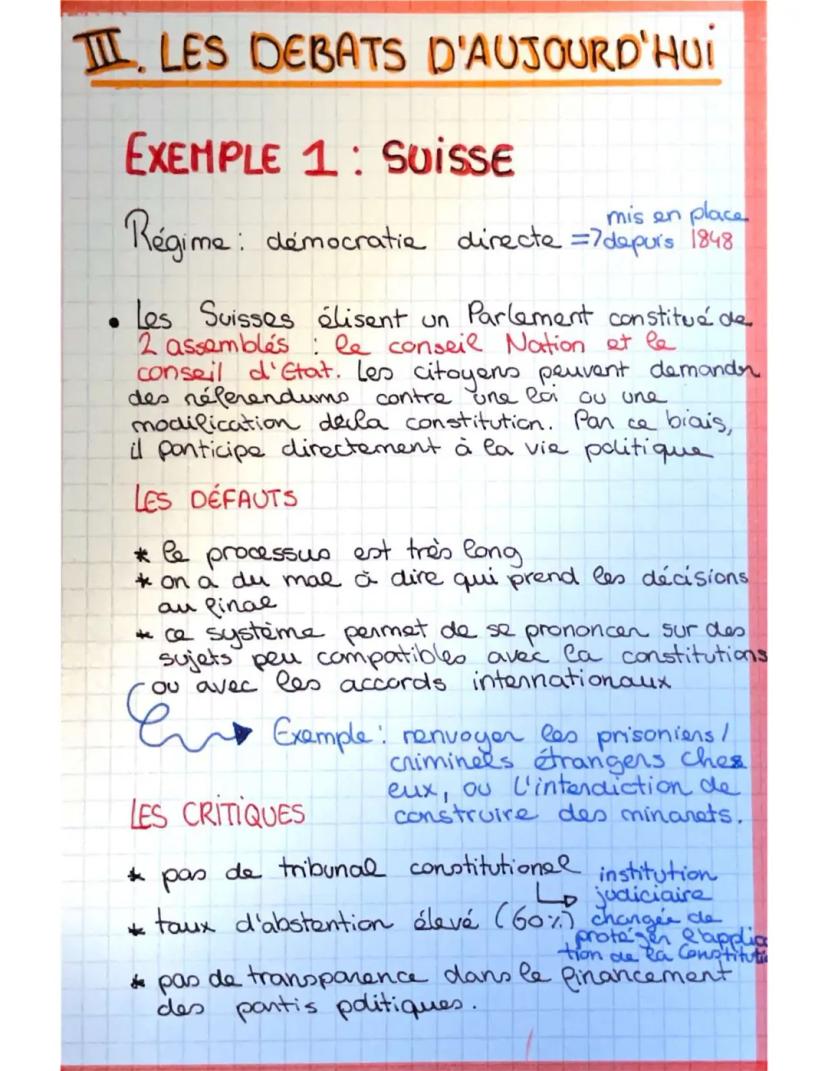 III. LES DEBATS D'AUJOURD'HUI
EXEMPLE 1 : SUISSE
mis en place
Régime : démocratie directe => depuis 1848
• Les Suisses élisent un Parlement constitué de
2 assemblés : le conseil Nation et le
conseil d'Etat. Les citoyens peuvent demander
des référendums contre une loi ou une
modification de la constitution. Par ce biais,
il participe directement à la vie politique
LES DÉFAUTS
* le processus est très long
* on a du mal à dire qui prend les décisions
au final
* ce système permet de se prononcer sur des
sujets peu compatibles avec la constitutions
ou avec les accords internationaux
Exemple : renvoyer les prisoniers /
criminels étrangers chez
eux, ou l'interdiction de
construire des minarets.
LES CRITIQUES
* pas de tribunal constitutionel
institution
judiciaire
* taux d'abstention élevé (60%)
changée de
protéger l'applica
tion de la Constituti
* pas de transparence dans le financement
des partis politiques.